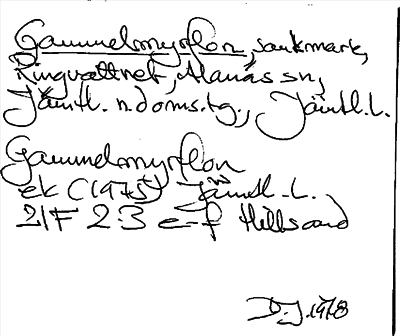 Gammelmyrflon, sankmark,
Ringvattnet, Alanäs sn,
Jämtl. n. doms.tg., Jämtl. L.
Gammelmyrflon
ek (1975) Jämtl. L.
21F 2-3 e-f Hillsand
D.J. 1978